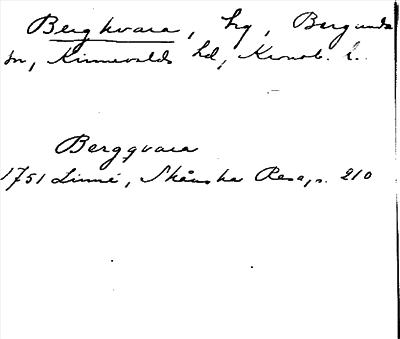 Bergkvara, hg, Bergunda
sn, Kinnevalds hd, Kronob. l.
Bergqvara
1751 Linné, Skånska Resa, s. 210